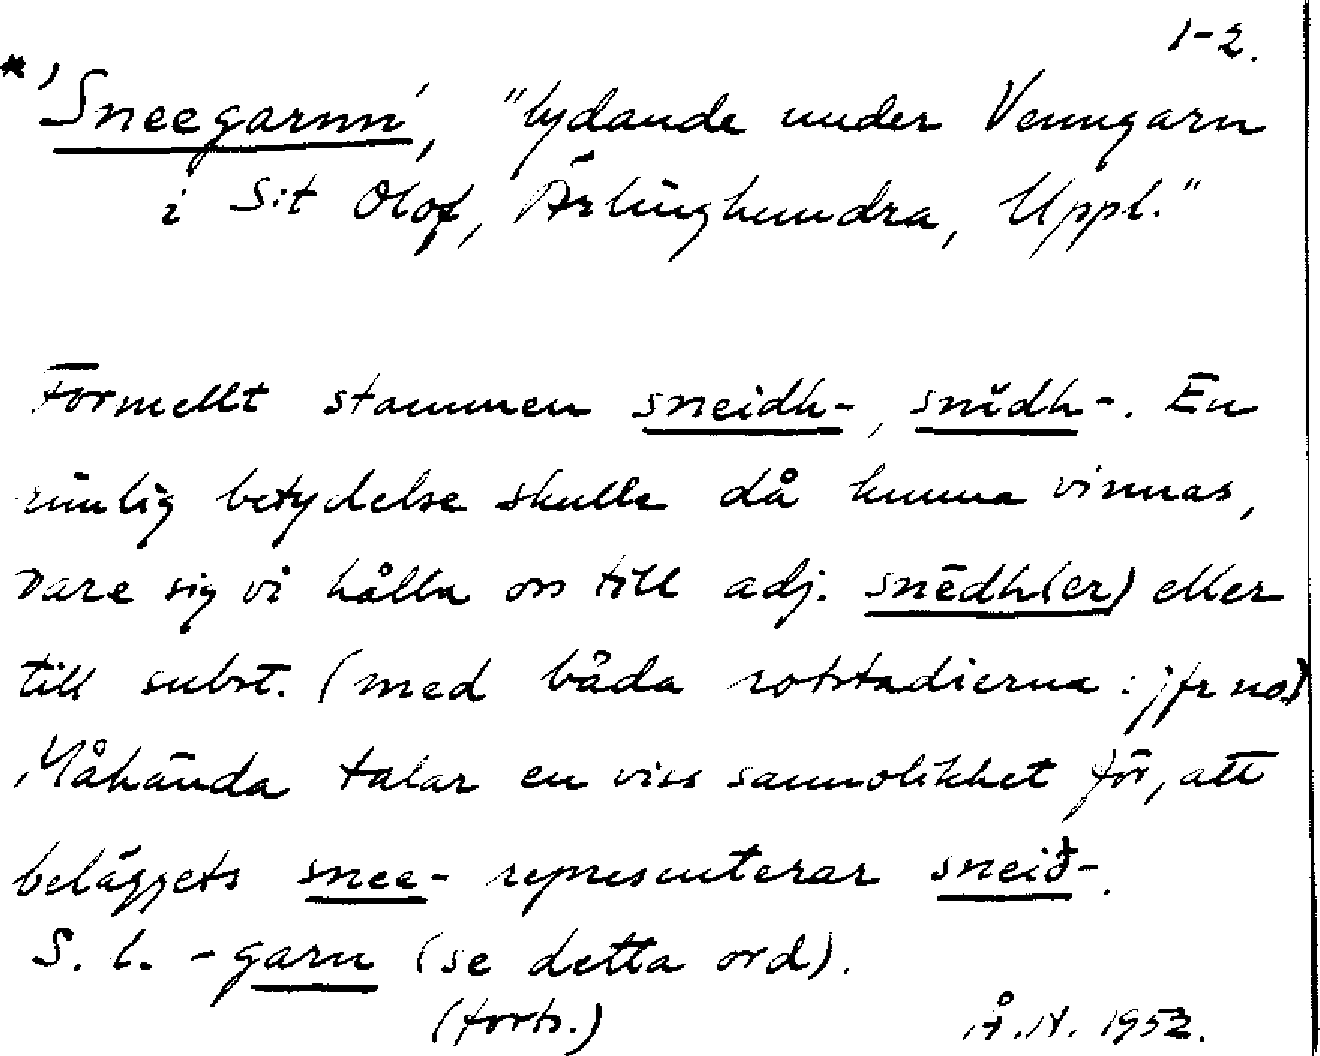 1-2.
*'Sneegarnn', "lydande under Venngarn
i S:t Olof, Ärlinghundra, Uppl."
Formellt stammen sneidh-, snĭdh-. En
rimlig betydelse skulle då kunna vinnas,
vare sig vi hålla oss till adj. snēdh(er) eller
till subst. (med båda rotstadierna: jfr no)
Måhända talar en viss sannolikhet för, att
beläggets snee- representerar sneið-.
S. l. -garn (se detta ord).
(forts.) Å.N. 1952.